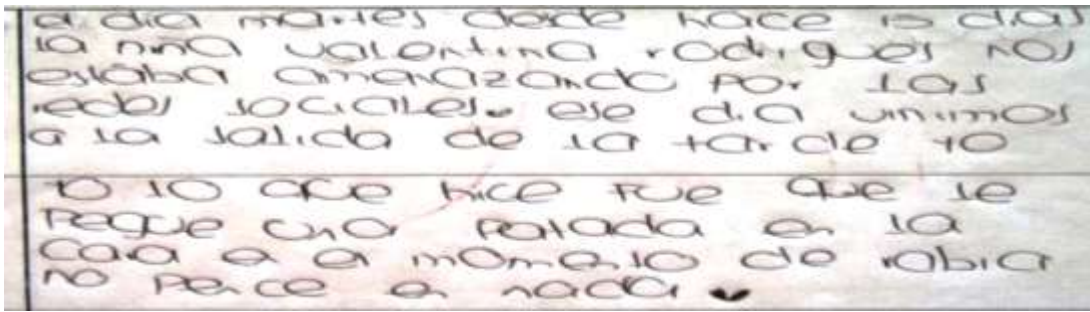 el dia martes desde hace 15 dias
la niña valentina rodrigues nos
estaba amenazando por las
redes sociales. ese dia vinimos
a la salida de la tarde yo
yo lo que hice fue que le
pegue una patada en la
cara en el momento de rabia
no pence en nada